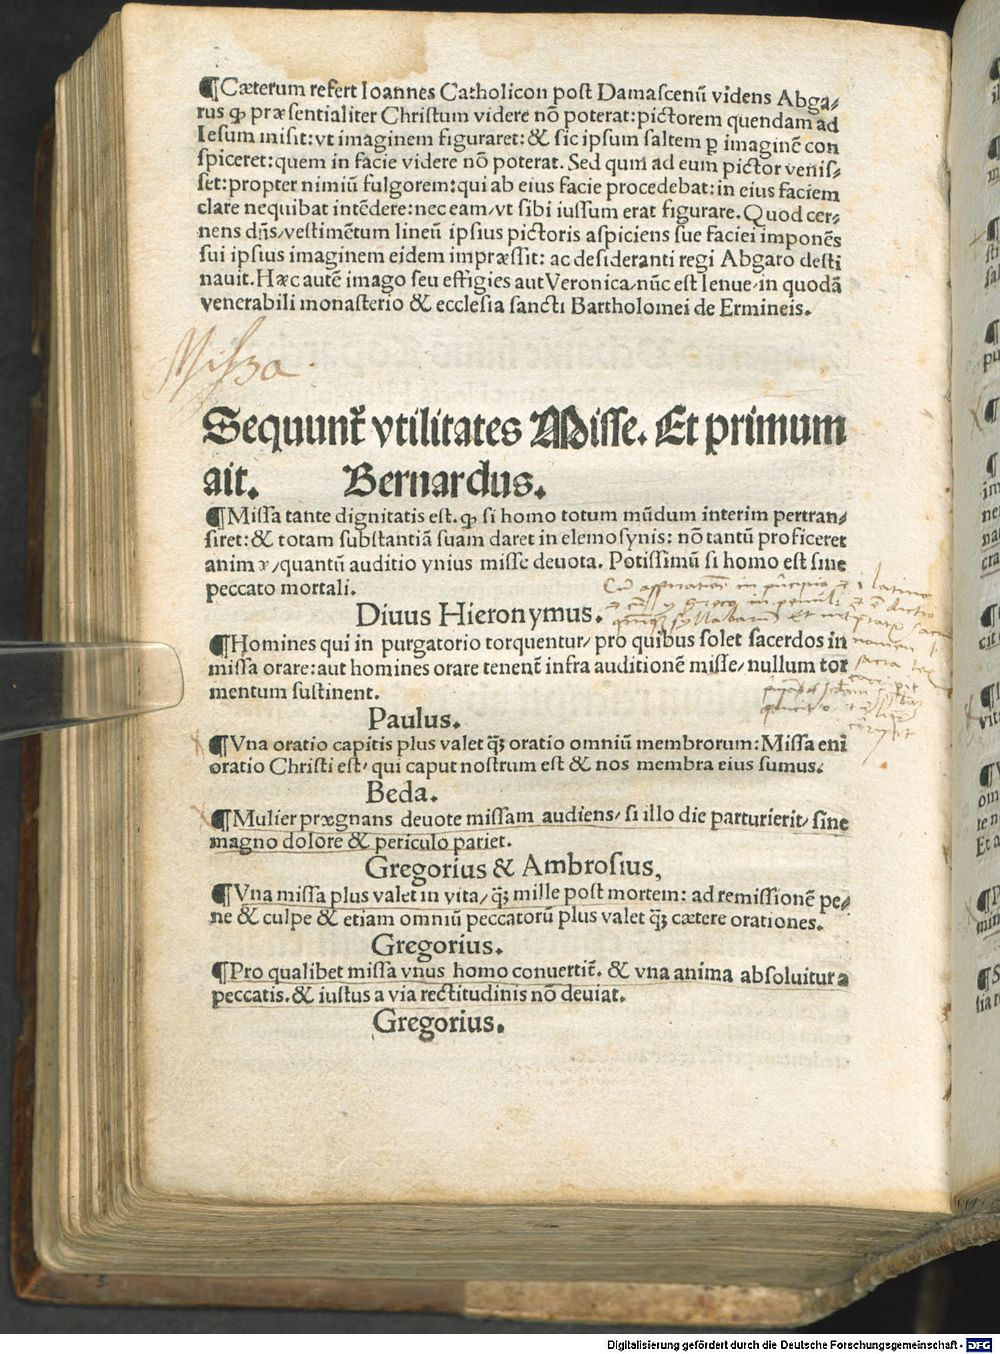 ¶Cæterum refert Ioannes Catholicon post Damascenū videns Abga⸗
rus ꝙ præsentialiter Christum videre nō poterat:pictorem quendam ad
Iesum misit:vt imaginem figuraret:& sic ipsum saltem ꝑ imaginē con
spiceret:quem in facie videre nō poterat. Sed qum ad eum pictor venis⸗
set:propter nimiū fulgorem:qui ab eius facie procedebat:in eius faciem
clare nequibat intēdere:nec eam/vt sibi iussum erat figurare. Quod cer⸗
nens dn̄s/vestimētum lineū ipsius pictoris aspiciens sue faciei imponēs
sui ipsius imaginem eidem impræssit: ac desideranti regi Abgaro desti
nauit. Hæc autē imago seu effigies aut Veronica/nūc est Ienue/in quodā
venerabili monasterio & ecclesia sancti Bartholomei de Ermineis.
Missa.
Sequunt̄ vtilitates Misse. Et primum
ait. Bernardus.
¶Missa tante dignitatis est. ꝙ si homo totum mūdum interim pertran⸗
siret:& totam substantiā suam daret in elemosynis: nō tantū proficeret
anim ꝛ/quantū auditio vnius misse deuota. Potissimū si homo est sine
peccato mortali.
Diuus Hieronymus.
¶Homines qui in purgatorio torquentur/pro quibus solet sacerdos in
missa orare:aut homines orare tenent̄ infra auditionē misse/nullum tor
mentum sustinent.
Paulus.
¶Vna oratio capitis plus valet q̄ꝫ oratio omniū membrorum:Missa eni
oratio Christi est/qui caput nostrum est & nos membra eius sumus.
Beda.
¶Mulier prægnans deuote missam audiens/si illo die parturierit/sine
magno dolore & periculo pariet.
Gregorius & Ambrosius,
¶Vna missa plus valet in vita/q̄ꝫ mille post mortem: ad remissionē pe⸗
ne & culpe & etiam omniū peccatorū plus valet q̄ꝫ cætere orationes.
Gregorius.
¶Pro qualibet missa vnus homo conuertit̄. & vna anima absoluitur a
peccatis. & iustus a via rectitudinis nō deuiat.
Gregorius.
Digitalisierung gefördert durch die Deutsche Forschungsgemeinschaft - DFG